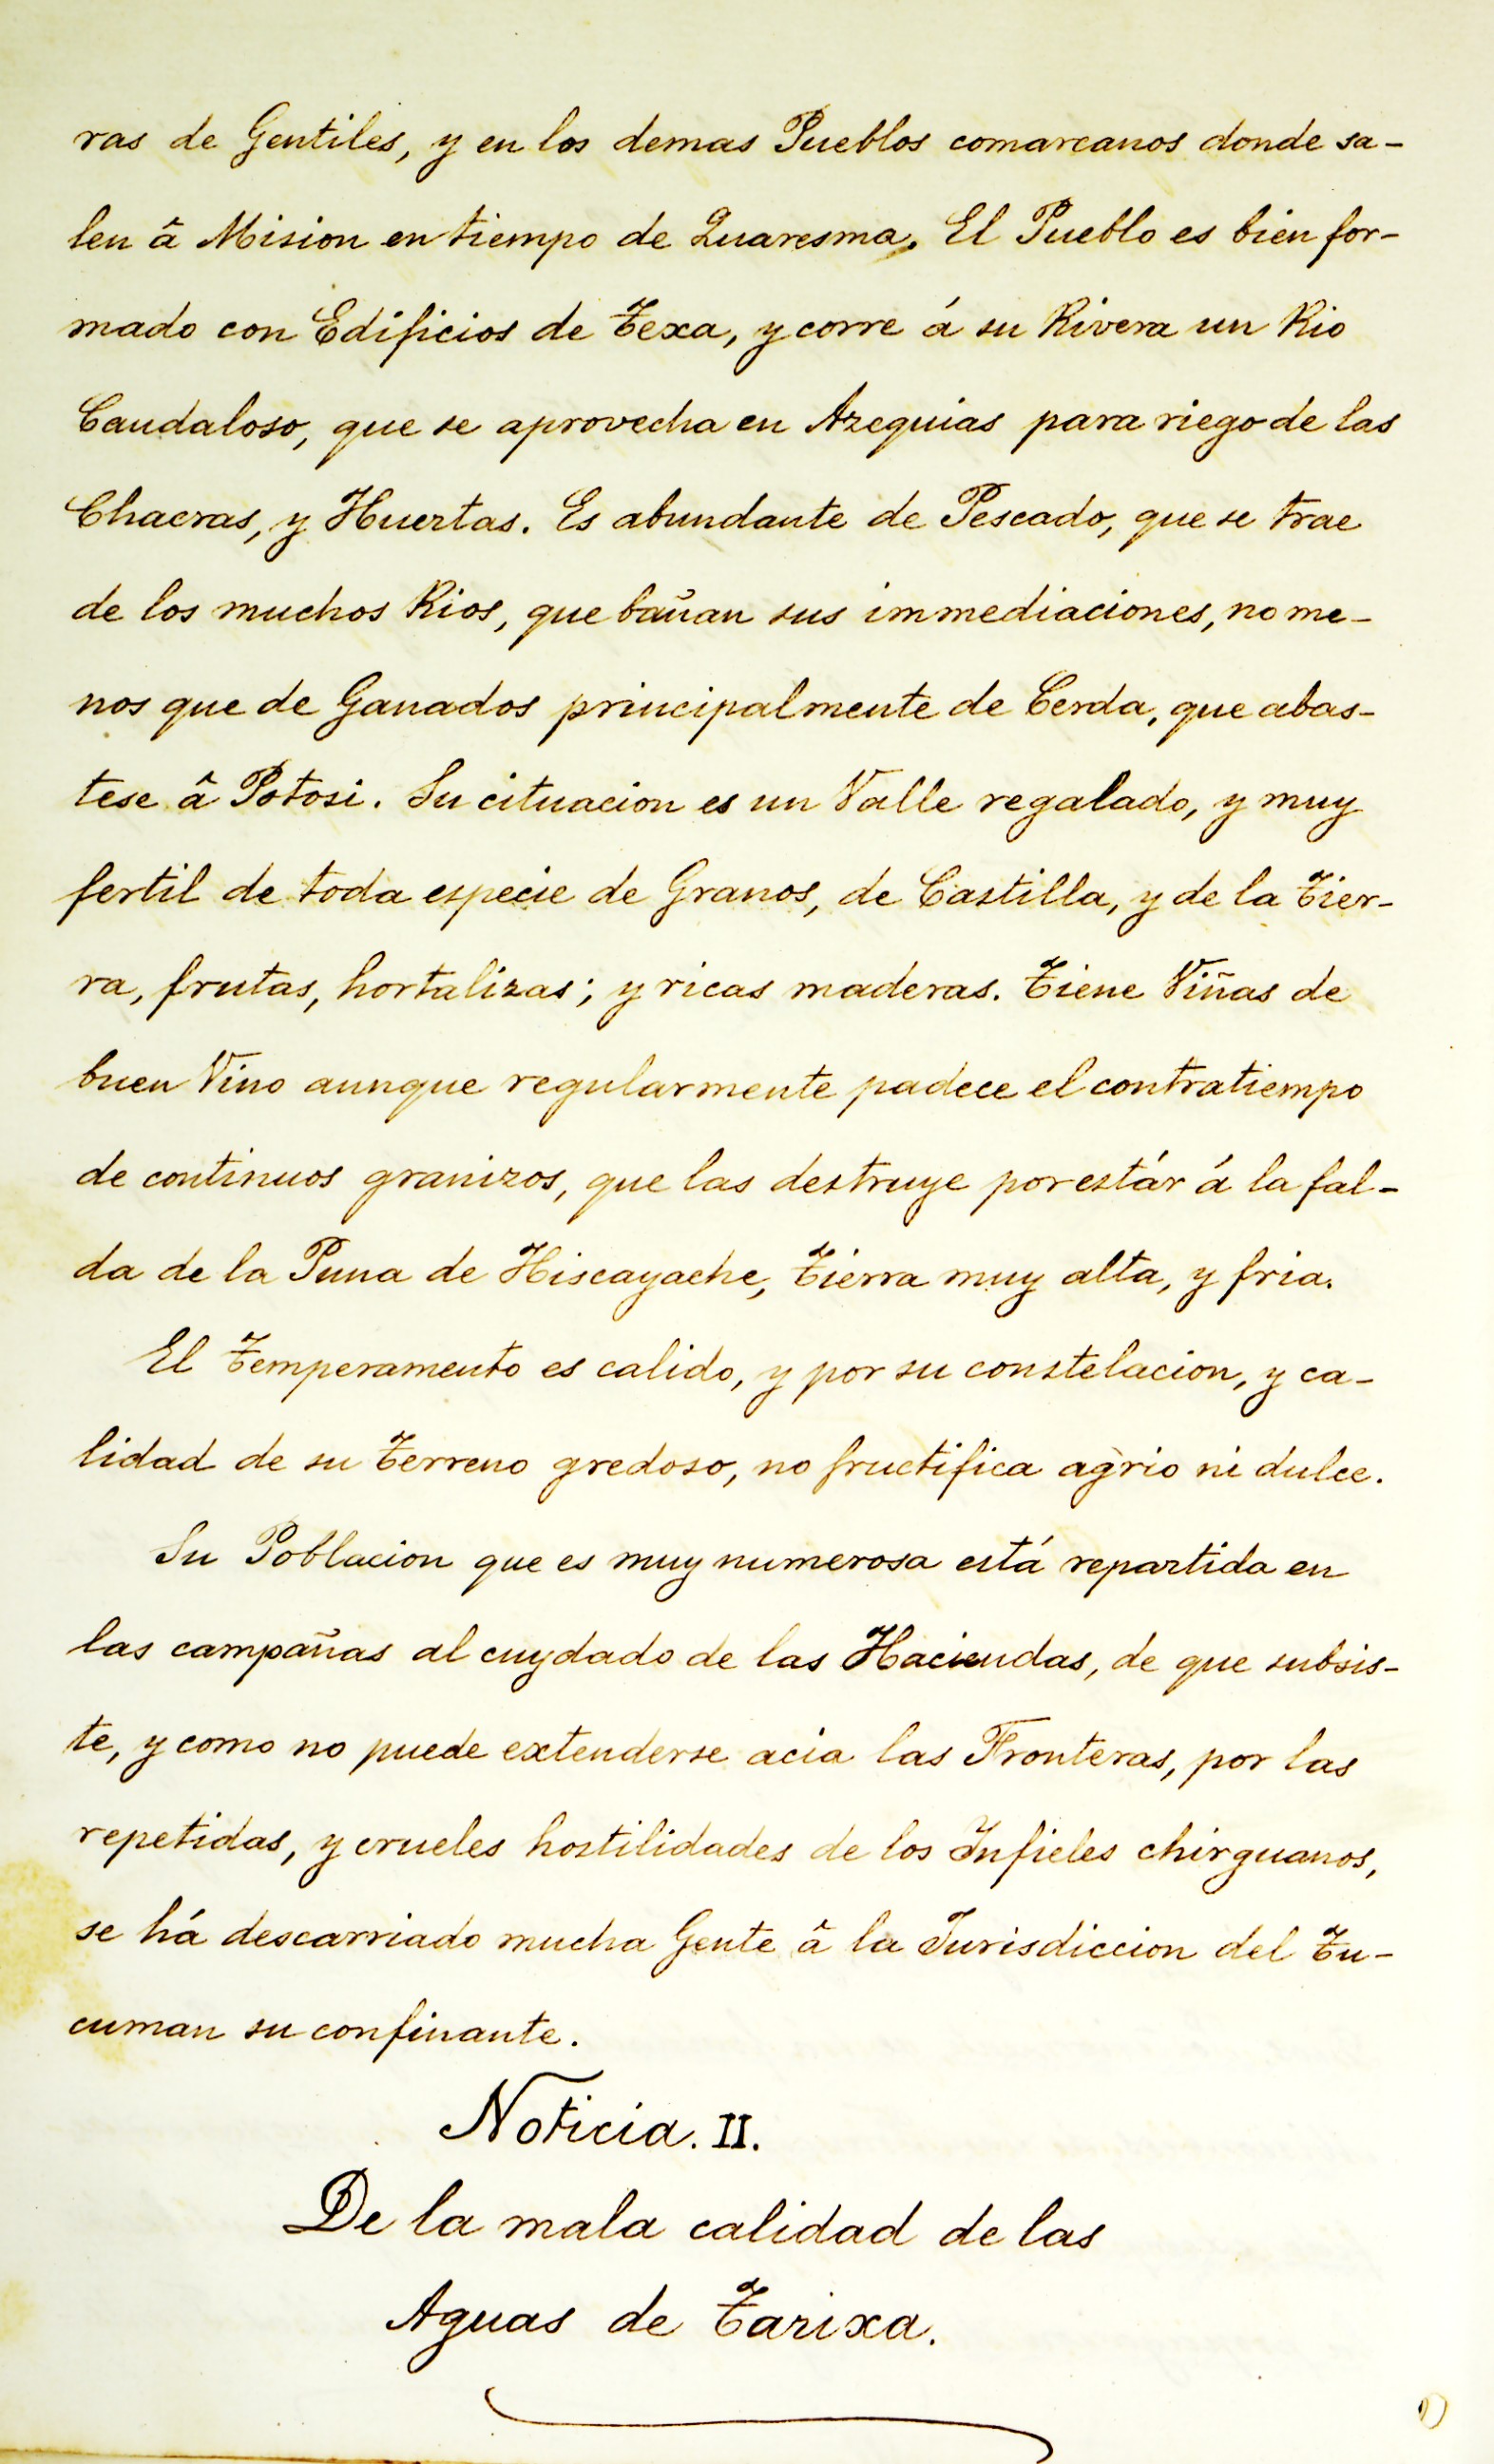 ras de Gentiles, y en los demas Pueblos comarcanos donde sa-
len â Mision en tiempo de Quaresma. El Pueblo es bien for-
mado con Edificios de Texa, y corre á su Rivera un Rio
Caudaloso, que se aprovecha en Azequias para riego de las
Chacras, y Huertas. Es abundante de Pescado, que se trae
de los muchos Rios, que bañan sus immediaciones, no me-
nos que de Ganados principalmente de Cerda, que abas-
tese â Potosi. Su cituacion es un Valle regalado, y muy
fertil de toda especie de Granos, de Castilla, y de la Tier-
ra, frutas, hortalizas; y ricas maderas. Tiene Viñas de
buen Vino aunque regularmente padece el contratiempo
de continuos granizos, que las destruye por estár á la fal-
da de la Puna de Hiscayache, Tierra muy alta, y fria.
El Temperamento es calido, y por su constelacion, y ca-
lidad de su Terreno gredoso, no fructifica agrio ni dulce.
Su Poblacion que es muy numerosa está repartida en
las campañas al cuydado de las Haciendas, de que subsis-
te, y como no puede extenderse acia las Fronteras, por las
repetidas, y crueles hostilidades de los Infieles chirguanos,
se há descarriado mucha Gente â la Jurisdiccion del Tu-
cuman su confinante.
Noticia. II.
De la mala calidad de las
Aguas de Tarixa.